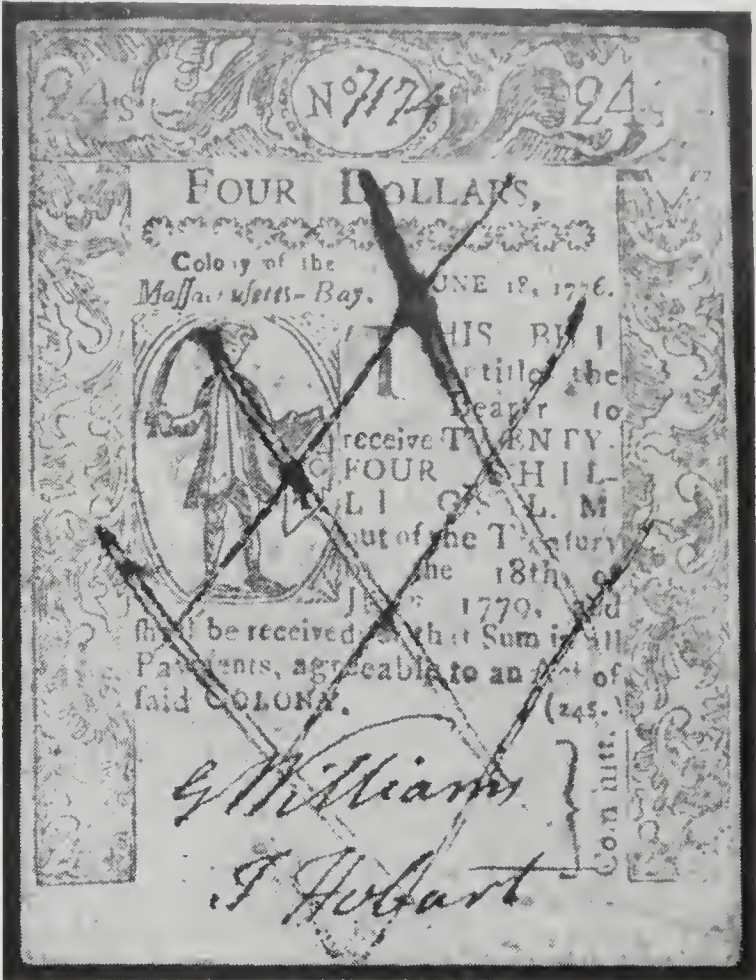 24s. Nº 7174 24s
FOUR DOLLARS,
Colony of the
Maſſachuſetts-Bay. JUNE 18, 1776.
THIS BILL
entitles the
Bearer to
receive TWENTY-
FOUR SHIL-
LINGS L. M
out of the Treaſury
the 18th of
JUNE 1779, and
ſhall be received for that Sum in all
Payments, agreeable to an Act of
ſaid COLONY. (24s.)
G Williams
J Hobart
Committ.